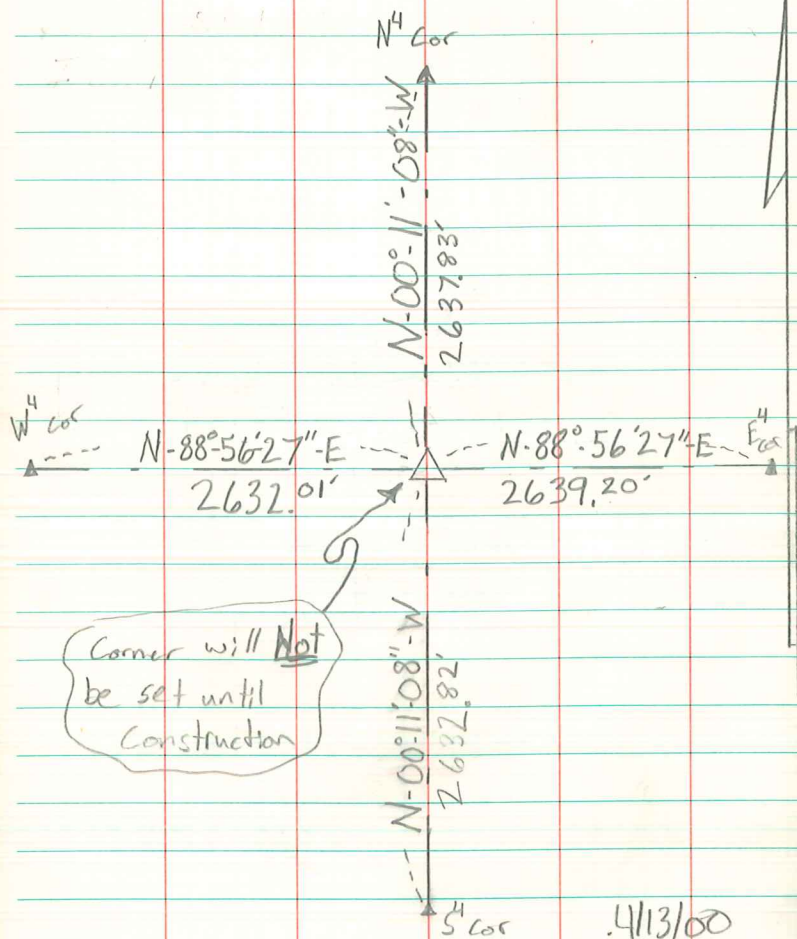 N⁴ Cor
N-00°-11'-08"-W
2637.83'
W⁴ cor
N-88°-56'27"-E
2632.01'
N-88°-56'27"-E
2639.20'
E⁴ cor
Corner will Not
be set until
Construction
N-00°11'-08"-W
2632.82'
S⁴ cor
4/13/00